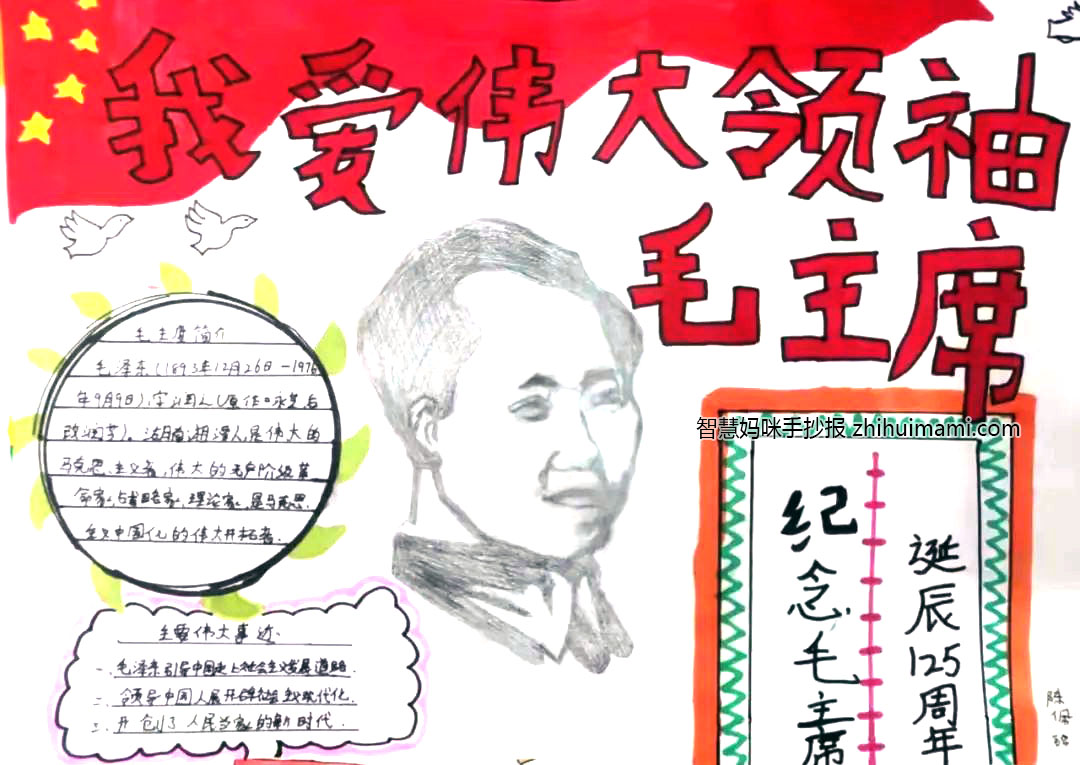 我爱伟大领袖
毛主席
毛主席简介
毛泽东(1893年12月26日-1976
年9月9日),字润之(原作咏芝,后
改润芝)。湖南湘潭人,是伟大的
马克思主义者,伟大的无产阶级革
命家,战略家,理论家,是马克思
主义中国化的伟大开拓者.
主要伟大事迹.
一.毛泽东引导中国走上社会主义发展道路.
二.领导中国人展开社会主义现代化.
三.开创了人民当家的新时代.
智慧妈咪手抄报 zhihuimami.com
纪念毛主席
诞辰125周年